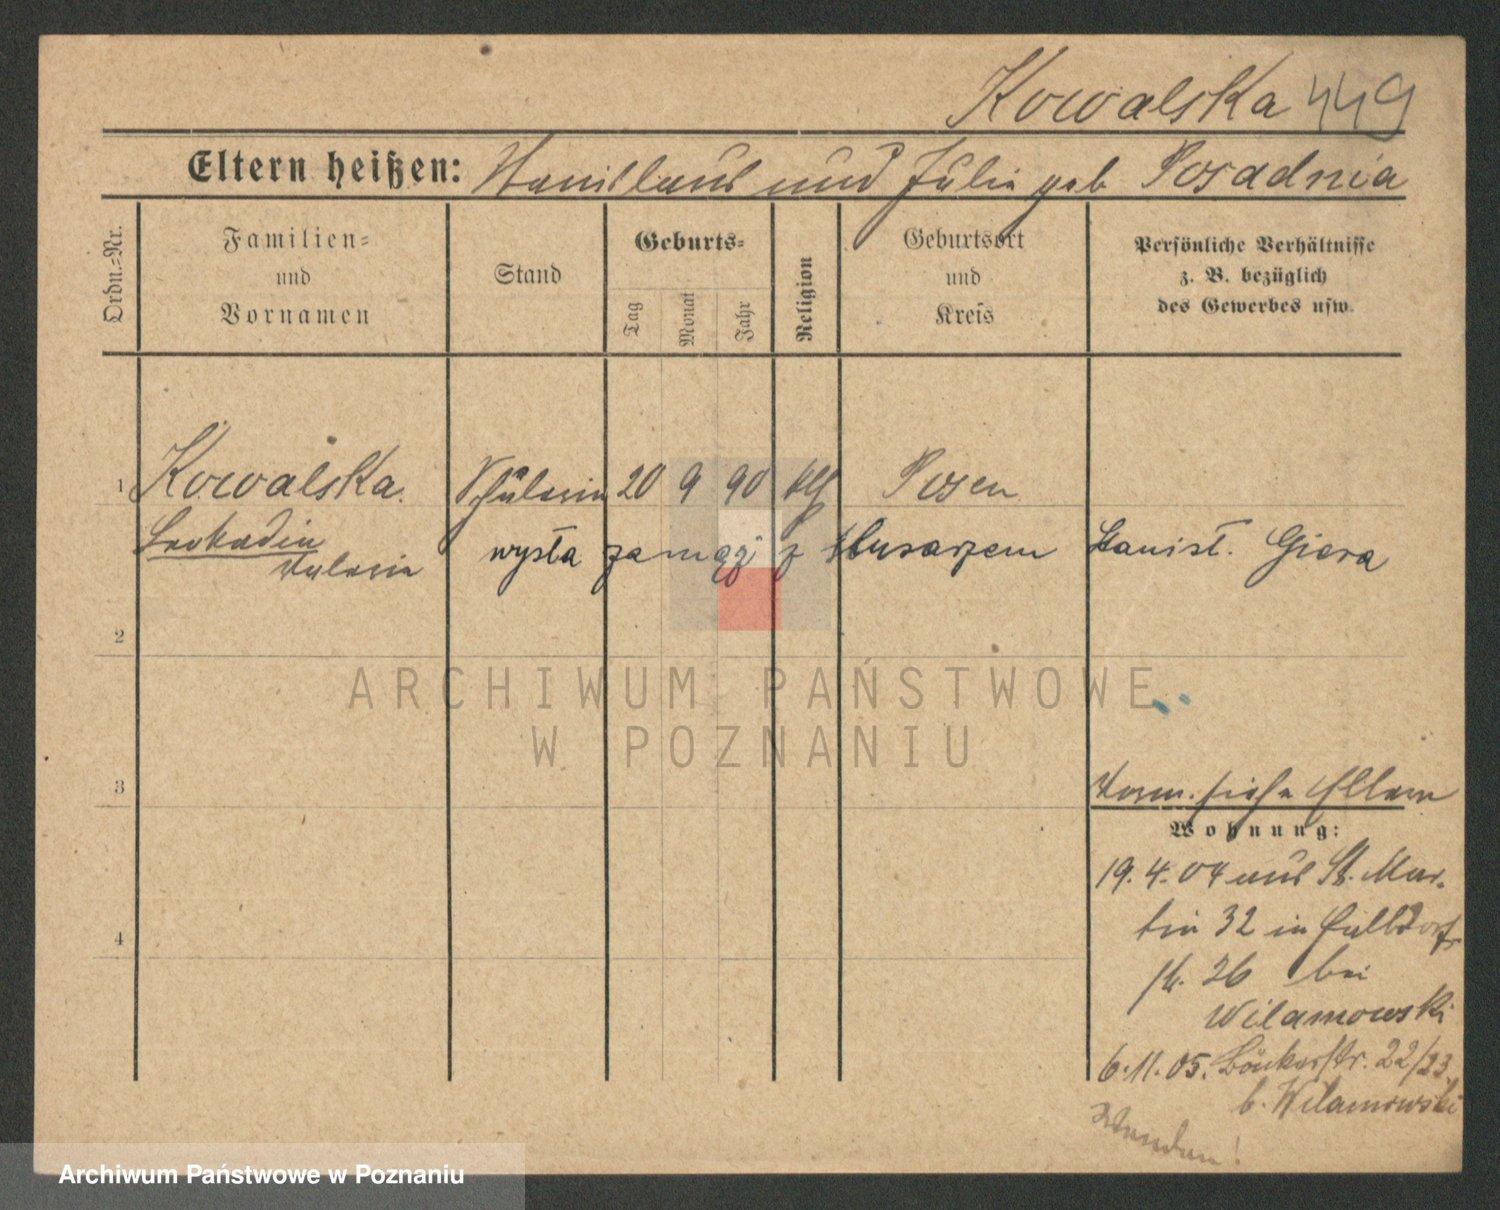 Kowalska 449
Eltern heißen: Stanislaus und Julie geb Posadnia
Ordn.-Nr.
Familien-
und
Vornamen
Stand
Geburts-
Tag
Monat
Jahr
Religion
Geburtsort
und
Kreis
Persönliche Verhältnisse
z. B. bezüglich
des Gewerbes usw.
1 Kowalska. Schülerin 20 9 90 kth Posen
Leokadia
Valeria
wyszła za mąż z Husarzem Stanisł. Giera
2
3
4
Vorm. siehe Eltern
Wohnung:
19. 4. 04 aus St. Mar-
tin 32 in Halldorf
str. 26 bei
Wilamowski
6.11.05. Bäckerstr. 22/23
b. Wilamowski
Wenden!
ARCHIWUM PAŃSTWOWE
W POZNANIU
Archiwum Państwowe w Poznaniu